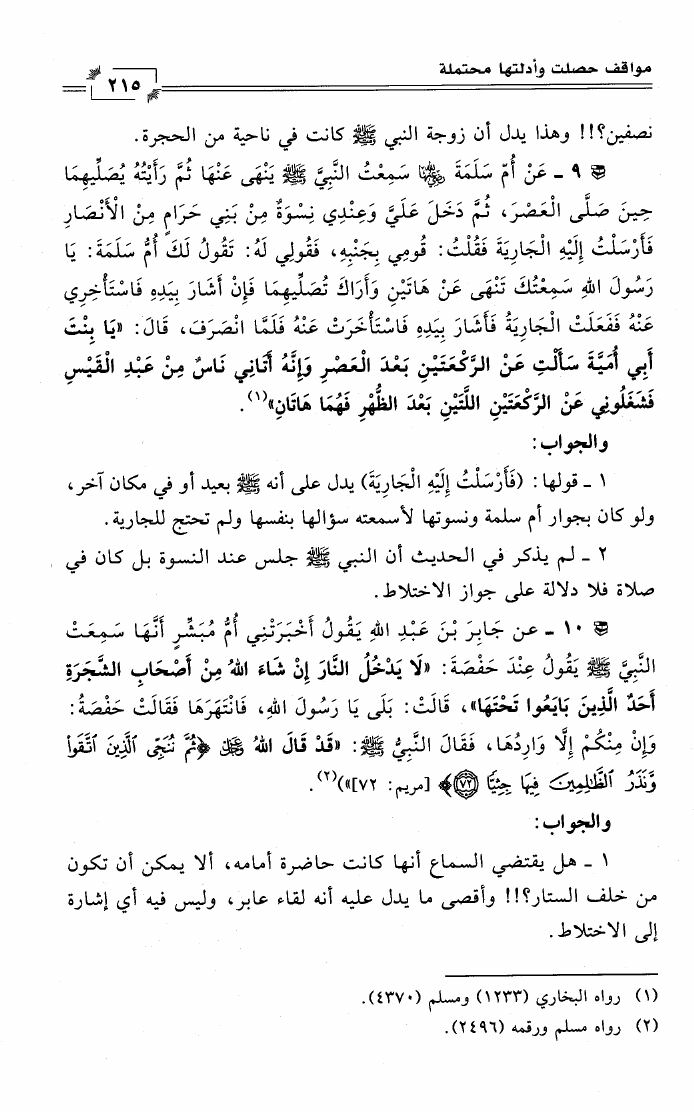 مواقف حصلت وأدلتها محتملة
٢١٥
نصفين؟!! وهذا يدل أن زوجة النبي ﷺ كانت في ناحية من الحجرة.
٩ ـ عَنْ أُمِّ سَلَمَةَ رضي الله عنها سَمِعْتُ النَّبِيَّ ﷺ يَنْهَى عَنْهَا ثُمَّ رَأَيْتُهُ يُصَلِّيهِمَا
حِينَ صَلَّى الْعَصْرَ، ثُمَّ دَخَلَ عَلَيَّ وَعِنْدِي نِسْوَةٌ مِنْ بَنِي حَرَامٍ مِنْ الْأَنْصَارِ
فَأَرْسَلْتُ إِلَيْهِ الْجَارِيَةَ فَقُلْتُ: قُومِي بِجَنْبِهِ، فَقُولِي لَهُ: تَقُولُ لَكَ أُمُّ سَلَمَةَ: يَا
رَسُولَ اللهِ سَمِعْتُكَ تَنْهَى عَنْ هَاتَيْنِ وَأَرَاكَ تُصَلِّيهِمَا فَإِنْ أَشَارَ بِيَدِهِ فَاسْتَأْخِرِي
عَنْهُ فَفَعَلَتْ الْجَارِيَةُ فَأَشَارَ بِيَدِهِ فَاسْتَأْخَرَتْ عَنْهُ فَلَمَّا انْصَرَفَ، قَالَ: «يَا بِنْتَ
أَبِي أُمَيَّةَ سَأَلْتِ عَنْ الرَّكْعَتَيْنِ بَعْدَ الْعَصْرِ وَإِنَّهُ أَتَانِي نَاسٌ مِنْ عَبْدِ الْقَيْسِ
فَشَغَلُونِي عَنْ الرَّكْعَتَيْنِ اللَّتَيْنِ بَعْدَ الظُّهْرِ فَهُمَا هَاتَانِ»(١).
والجواب:
١ ـ قولها: (فَأَرْسَلْتُ إِلَيْهِ الْجَارِيَةَ) يدل على أنه ﷺ بعيد أو في مكان آخر،
ولو كان بجوار أم سلمة ونسوتها لأسمعته سؤالها بنفسها ولم تحتج للجارية.
٢ ـ لم يذكر في الحديث أن النبي ﷺ جلس عند النسوة بل كان في
صلاة فلا دلالة على جواز الاختلاط.
١٠ ـ عن جَابِرَ بْنَ عَبْدِ اللهِ يَقُولُ أَخْبَرَتْنِي أُمُّ مُبَشِّرٍ أَنَّهَا سَمِعَتْ
النَّبِيَّ ﷺ يَقُولُ عِنْدَ حَفْصَةَ: «لَا يَدْخُلُ النَّارَ إِنْ شَاءَ اللهُ مِنْ أَصْحَابِ الشَّجَرَةِ
أَحَدٌ الَّذِينَ بَايَعُوا تَحْتَهَا»، قَالَتْ: بَلَى يَا رَسُولَ اللهِ، فَانْتَهَرَهَا فَقَالَتْ حَفْصَةُ:
وَإِنْ مِنْكُمْ إِلَّا وَارِدُهَا، فَقَالَ النَّبِيُّ ﷺ: «قَدْ قَالَ اللهُ ﷻ ﴿ثُمَّ نُنَجِّى ٱلَّذِينَ ٱتَّقَوا۟
وَّنَذَرُ ٱلظَّٰلِمِينَ فِيهَا جِثِيًّا ٧٢﴾ [مريم: ٧٢]»)(٢).
والجواب:
١ ـ هل يقتضي السماع أنها كانت حاضرة أمامه، ألا يمكن أن تكون
من خلف الستار؟!! وأقصى ما يدل عليه أنه لقاء عابر، وليس فيه أي إشارة
إلى الاختلاط.
(١) رواه البخاري (١٢٣٣) ومسلم (٤٣٧٠).
(٢) رواه مسلم ورقمه (٢٤٩٦).